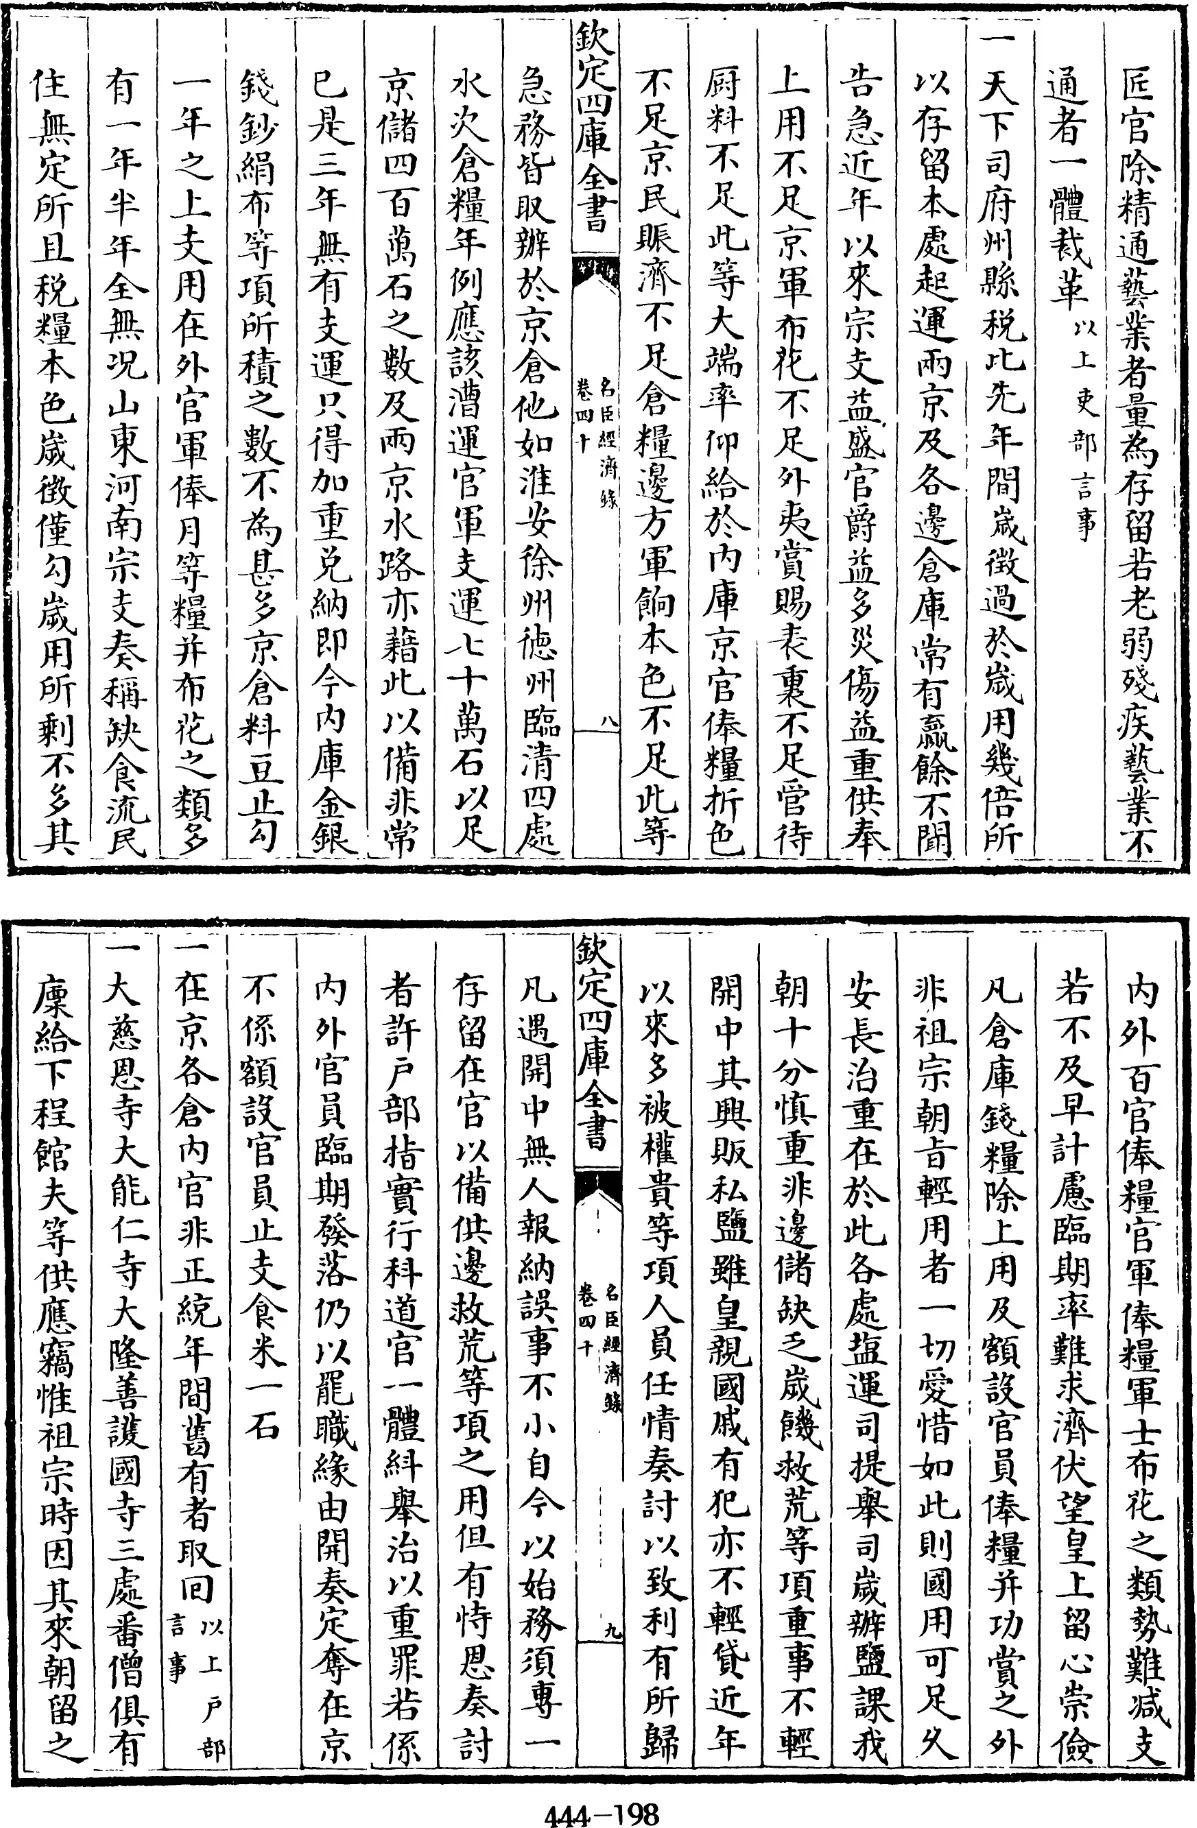 匠官除精通藝業者量為存留若老弱殘疾藝業不
通者一體裁革以上吏部言事
一天下司府州縣税比先年間嵗徴過於嵗用幾倍所
以存留本處起運兩京及各邊倉庫常有羸餘不聞
告急近年以來宗支益盛官爵益多災傷益重供奉
上用不足京軍布花不足外夷賞賜表裏不足管待
厨料不足此等大端率仰給於内庫京官俸糧折色
不足京民賑濟不足倉糧邊方軍餉本色不足此等
欽定四庫全書
名臣經濟錄
卷四十
八
急務皆取辦於京倉他如淮安徐州德州臨清四處
水次倉糧年例應該漕運官軍支運七十萬石以足
京儲四百萬石之數及兩京水路亦藉此以備非常
已是三年無有支運只得加重兑納即今内庫金銀
錢鈔絹布等項所積之數不為甚多京倉料豆止勾
一年之上支用在外官軍俸月等糧并布花之類多
有一年半年全無况山東河南宗支奏稱缺食流民
住無定所且税糧本色嵗徴僅勾嵗用所剩不多其
内外百官俸糧官軍俸糧軍士布花之類勢難減支
若不及早計慮臨期率難求濟伏望皇上留心崇儉
凡倉庫錢糧除上用及額設官員俸糧并功賞之外
非祖宗朝㫖輕用者一切愛惜如此則國用可足久
安長治重在於此各處塩運司提舉司嵗辦鹽課我
朝十分慎重非邊儲缺乏嵗饑救荒等項重事不輕
開中其興販私鹽雖皇親國戚有犯亦不輕貸近年
以來多被權貴等項人員任情奏討以致利有所歸
欽定四庫全書
名臣經濟錄
卷四十
九
凡遇開中無人報納誤事不小自今以始務須專一
存留在官以備供邊救荒等項之用但有恃恩奏討
者許戸部指實行科道官一體糾舉治以重罪若係
内外官員臨期發落仍以罷職緣由開奏定奪在京
不係額設官員止支食米一石
一在京各倉内官非正統年間舊有者取回以上戸部
言事
一大慈恩寺大能仁寺大隆善護國寺三處番僧俱有
廩給下程館夫等供應竊惟祖宗時因其來朝留之
444-198